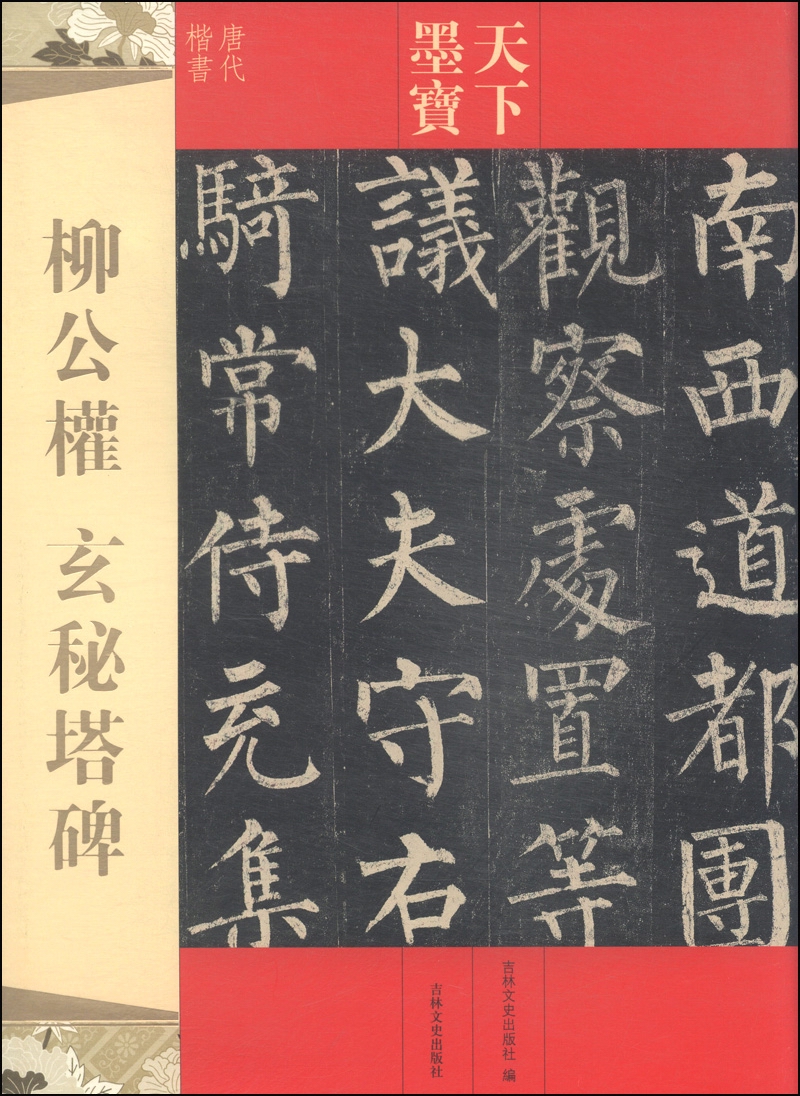 天下
墨寶
唐代
楷書
柳公權 玄秘塔碑
南西道都團
觀察處置等
議大夫守右
騎常侍充集
吉林文史出版社 編
吉林文史出版社